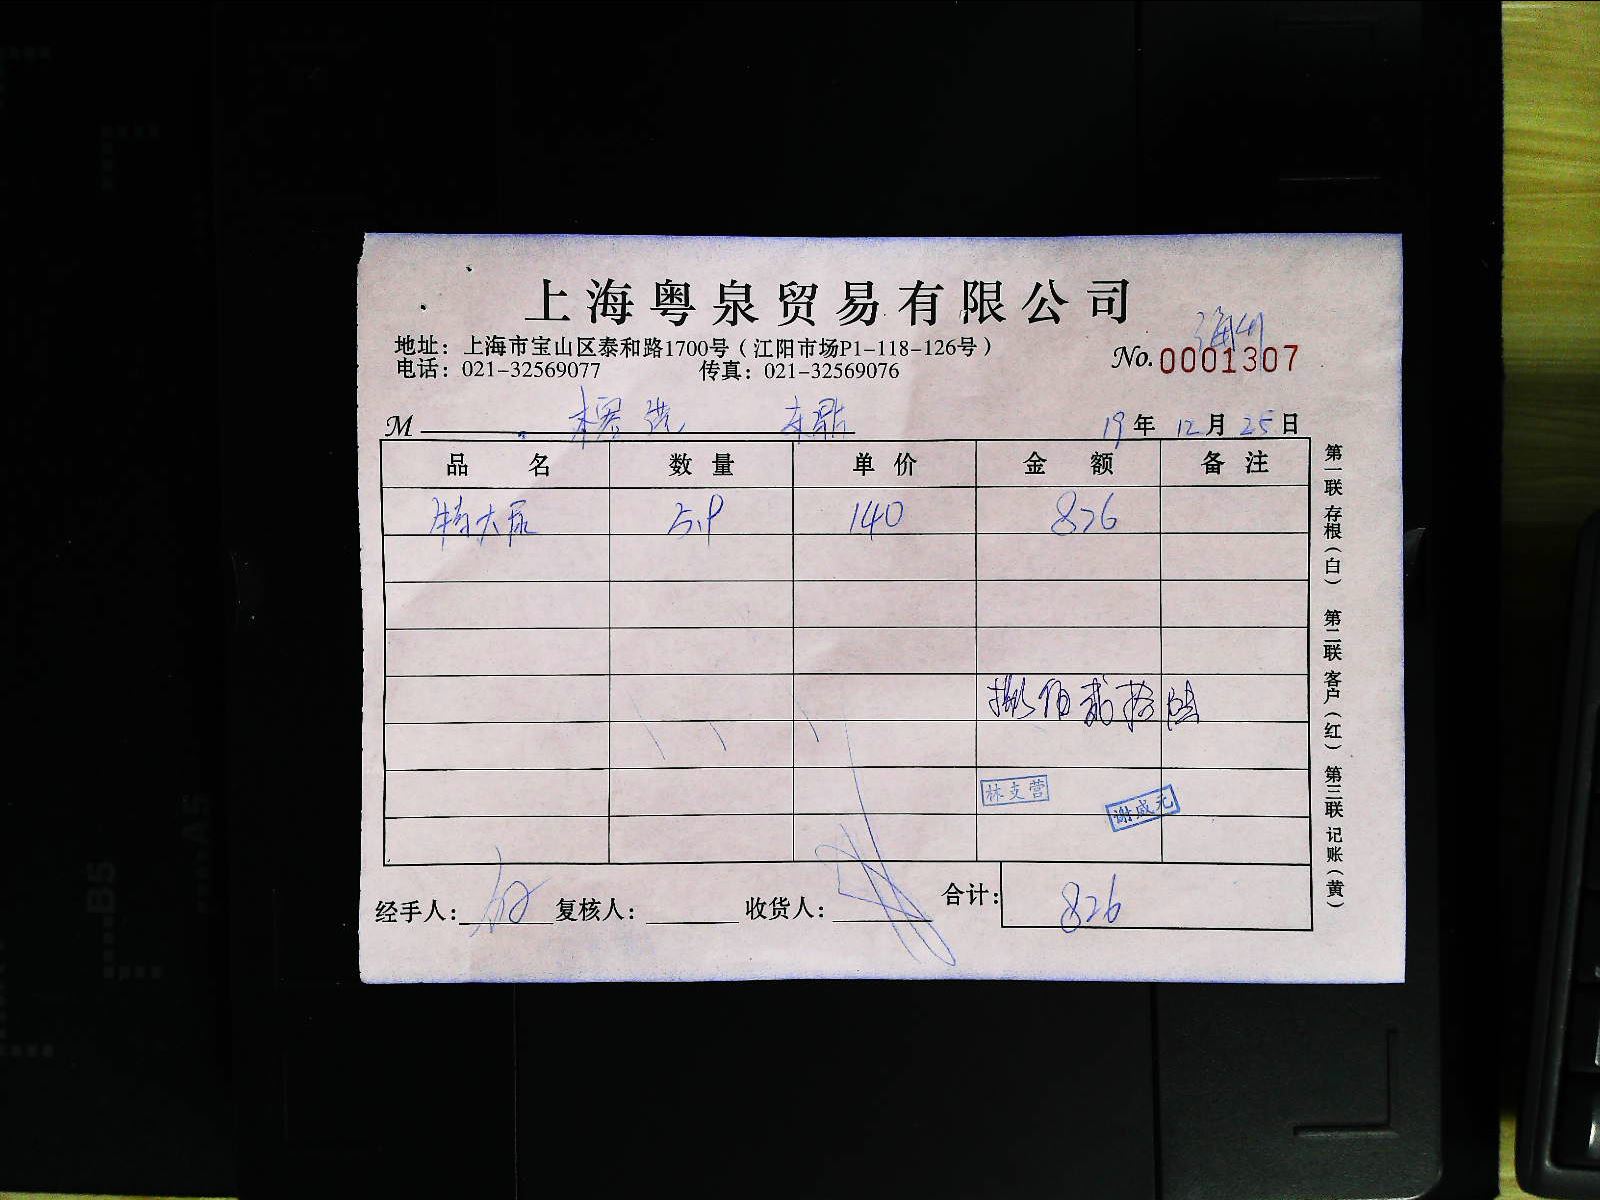 上海粤泉贸易有限公司
地址：上海市宝山区泰和路1700号（江阳市场P1-118-126号）
电话：021-32569077 传真：021-32569076
No. 0001307
M
19年12月25日
品名 数量 单价 金额 备注
特大尿 5.9 140 826
捌佰贰拾陆
林支营
谢成元
经手人： 复核人： 收货人： 合计：826
第一联存根（白） 第二联客户（红） 第三联记账（黄）
B5
A5